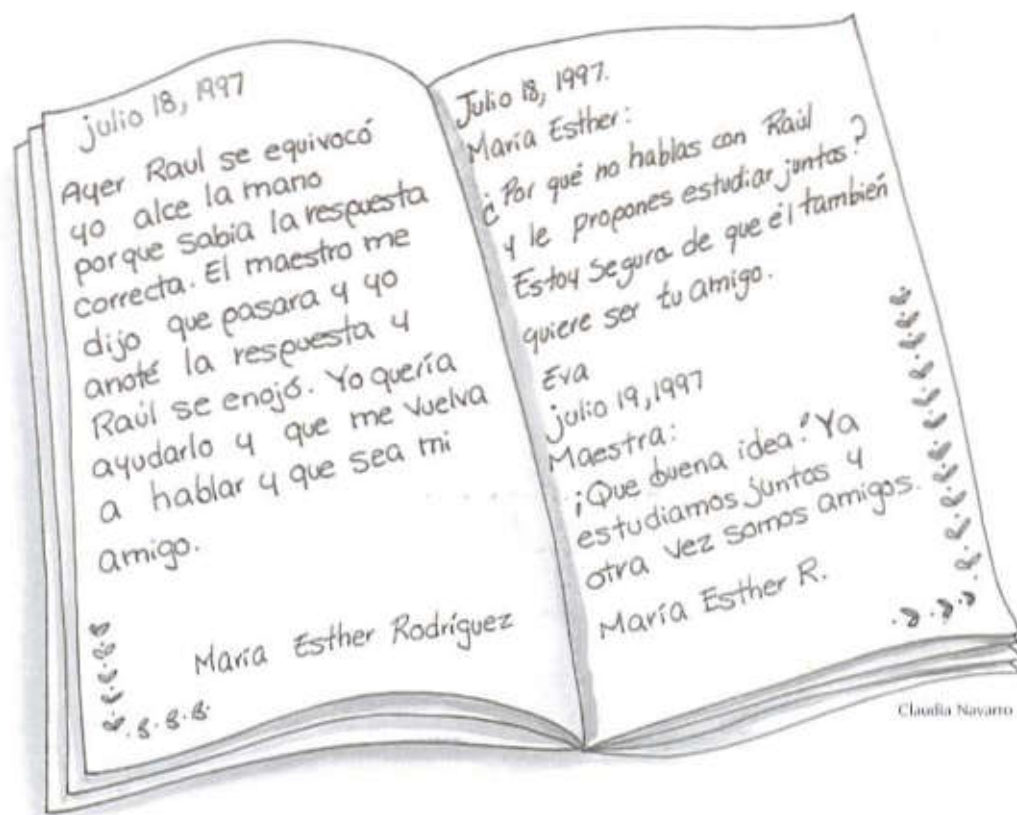 julio 18, 1997
Ayer Raul se equivocó
yo alce la mano
porque sabia la respuesta
correcta. El maestro me
dijo que pasara y yo
anoté la respuesta y
Raúl se enojó. Yo quería
ayudarlo y que me vuelva
a hablar y que sea mi
amigo.
María Esther Rodríguez
Julio 18, 1997.
María Esther:
¿Por qué no hablas con Raúl
y le propones estudiar juntos?
Estoy segura de que él también
quiere ser tu amigo.
Eva
julio 19, 1997
Maestra:
¡Que buena idea! Ya
estudiamos juntos y
otra vez somos amigos.
María Esther R.
Claudia Navarro